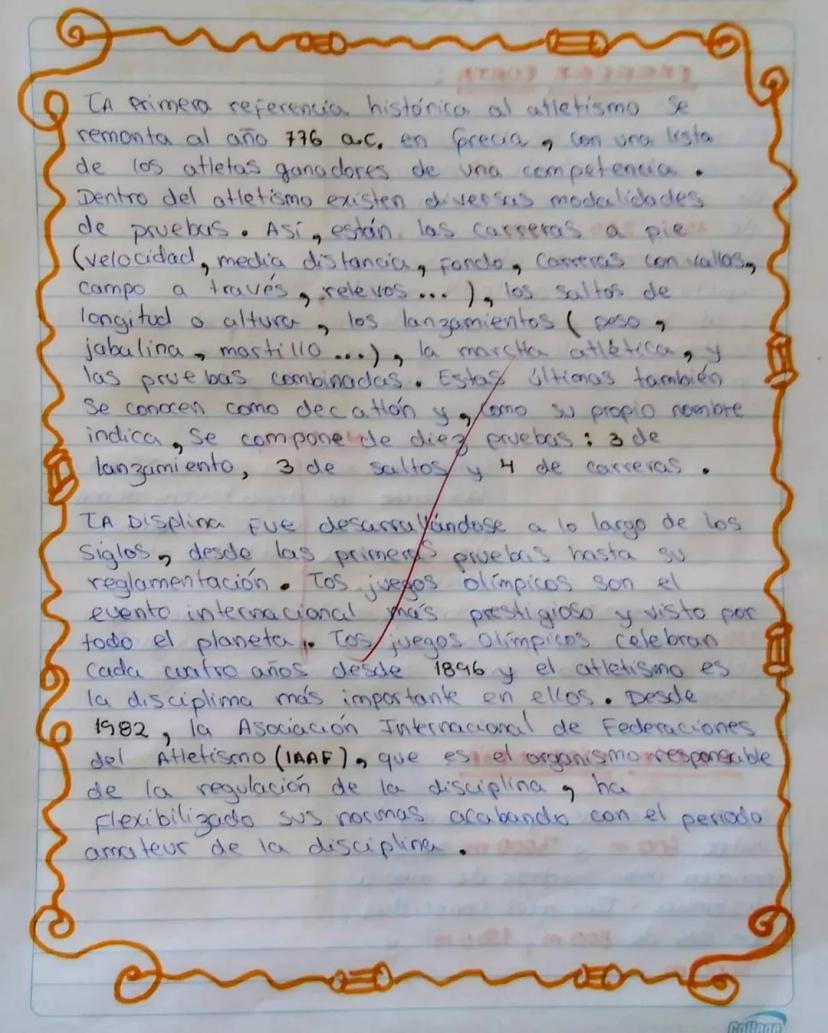 LA Primera referencia histórica al atletismo se
remonta al año 776 a.C. en Grecia, con una lista
de los atletas ganadores de una competencia.
Dentro del atletismo existen diversas modalidades
de pruebas. Así, están las carreras a pie
(velocidad, media distancia, Fondo, Carreras con vallas,
campo a través, relevos...), los saltos de
longitud o altura, los lanzamientos (peso,
jabalina, martillo...), la marcha atlética, y
las pruebas combinadas. Estas últimas también
se conocen como decatlón y, como su propio nombre
indica, se compone de diez pruebas: 3 de
lanzamiento, 3 de saltos y 4 de carreras.
LA Displina Fue desarrallándose a lo largo de los
siglos, desde las primeras pruebas hasta su
reglamentación. Los juegos olímpicos son el
evento internacional más prestigioso y visto por
todo el planeta. Los juegos Olímpicos celebran
cada cuatro años desde 1896 y el atletismo es
la disciplima más importante en ellos. Desde
1982, la Asociación Internacional de Federaciones
del Atletismo (IAAF), que es el organismo responsable
de la regulación de la disciplina, ha
Flexibilizado sus normas acabando con el periodo
amateur de la disciplina.
College